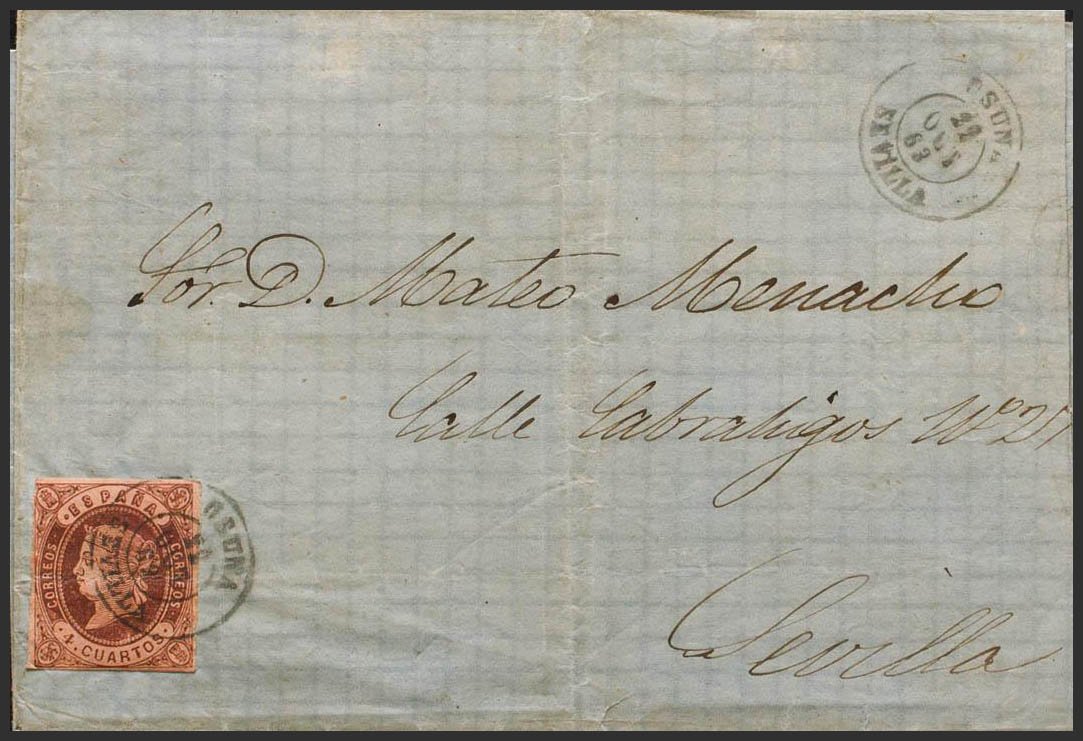 OSUNA
22
OCT
63
SEVILLA
Sor. D. Mateo Menacho
Calle Cabrahigos Nº 27
Sevilla
ESPAÑA
CORREOS
CORREOS
4 CUARTOS.
OSUNA
SEVILLA